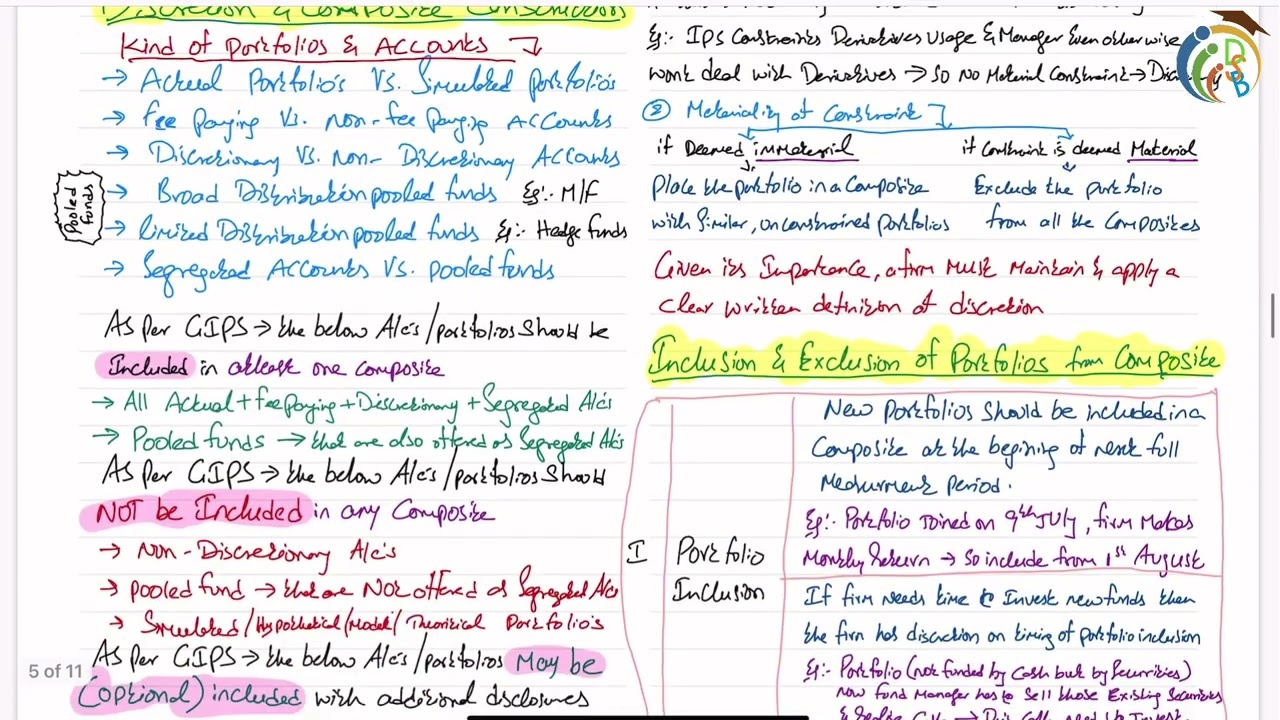 Discretion & Composite Construction
Kind of Portfolios & Accounts
→ Actual Portfolio's Vs. Simulated portfolio's
→ fee paying Vs. Non-fee paying Accounts
→ Discretionary Vs. Non-Discretionary Accounts
→ Broad Distribution pooled funds Eg:- M/F
→ limited Distribution pooled funds Eg:- Hedge funds
→ Segregated Accounts Vs. pooled funds
Pooled funds
As Per GIPS → the below A/c's/portfolios should be
Included in atleast one composite
→ All Actual + fee paying + Discretionary + Segregated A/c's
→ Pooled funds → that are also offered as Segregated A/c's
As Per GIPS → the below A/c's/portfolios should
NOT be Included in any Composite
→ Non-Discretionary A/c's
→ pooled fund → that are NOT offered as Segregated A/c's
→ Simulated/Hypothetical/Model/Theoritical Portfolio's
As Per GIPS → the below A/c's/portfolios May be
(optional) included with additional disclosures
5 of 11
Eg:- IPS Constraints Derivatives usage & Manager Even otherwise
wont deal with Derivatives → so No Material Constraint →
② Materiality of Constraint
if Deemed immaterial
Place the portfolio in a Composite
with Similar, unconstrained portfolios
if Constraint is deemed Material
Exclude the portfolio
from all the Composites
Given its Importance, a firm Must Maintain & apply a
clear written definition of discretion
Inclusion & Exclusion of Portfolios from Composite
I Portfolio
Inclusion
New Portfolios should be included in a
Composite at the begining of next full
Measurment period.
Eg:- Portfolio Joined on 9th July, firm Makes
Monthly Return → So include from 1st August
If firm needs time to Invest new funds then
the firm has discretion on timing of portfolio inclusion
Eg:- Portfolio (not funded by Cash but by Securities)
Now fund Manager has to Sell those Existing Securities
DSB